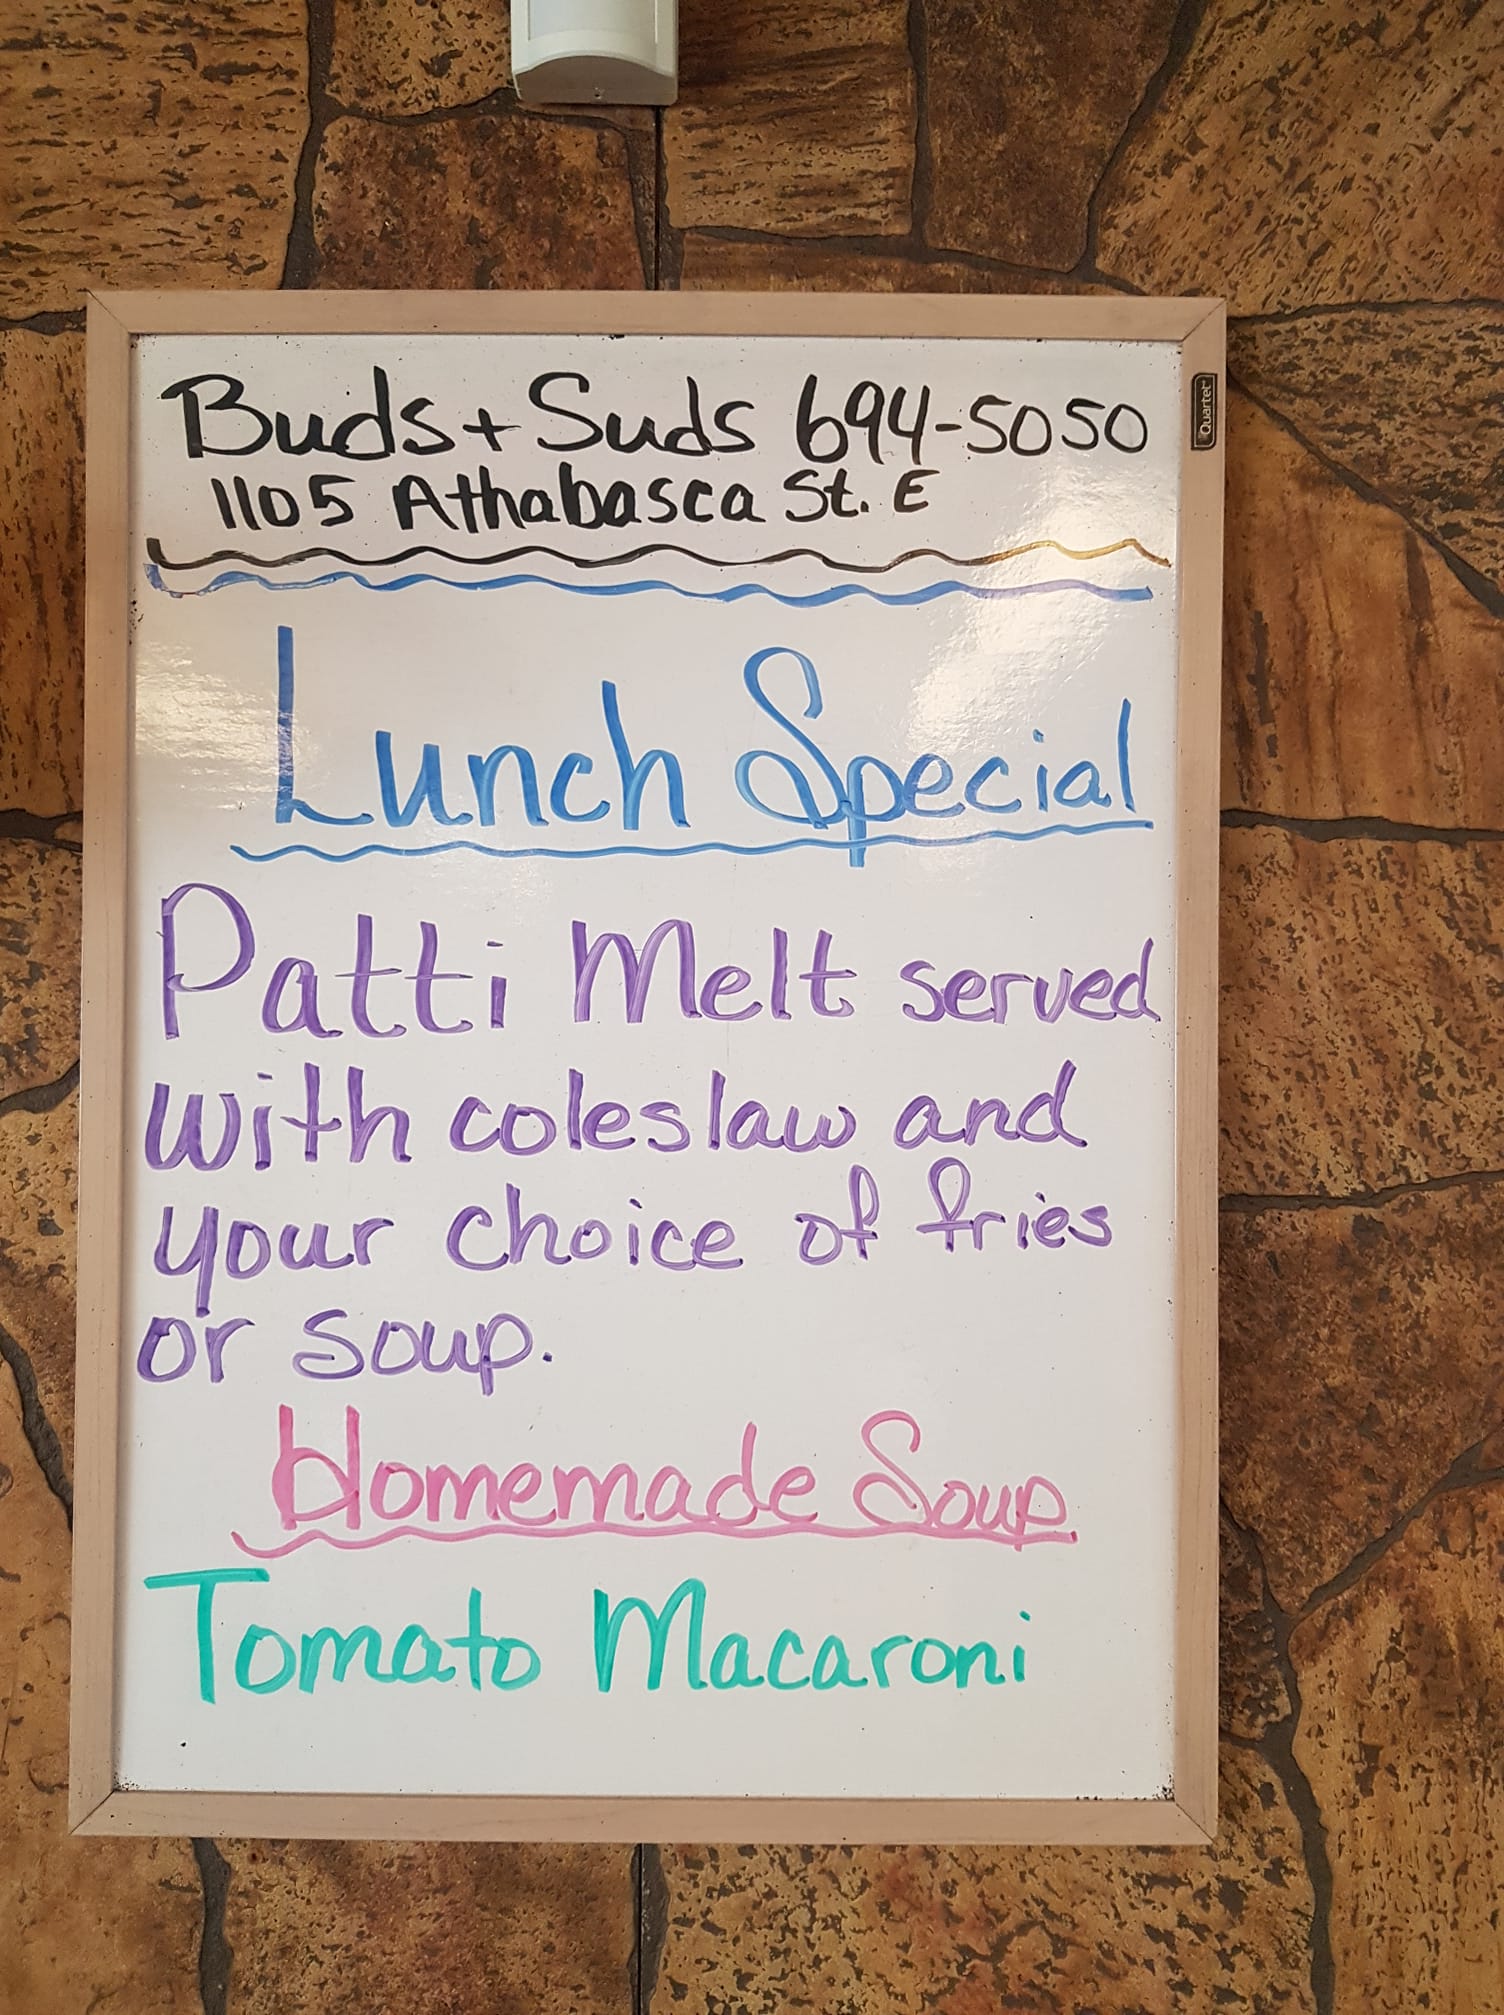 Buds + Suds 694-5050
1105 Athabasca St. E
Quartet
Lunch Special
Patti Melt served
with coleslaw and
your choice of fries
or soup.
Homemade Soup
Tomato Macaroni